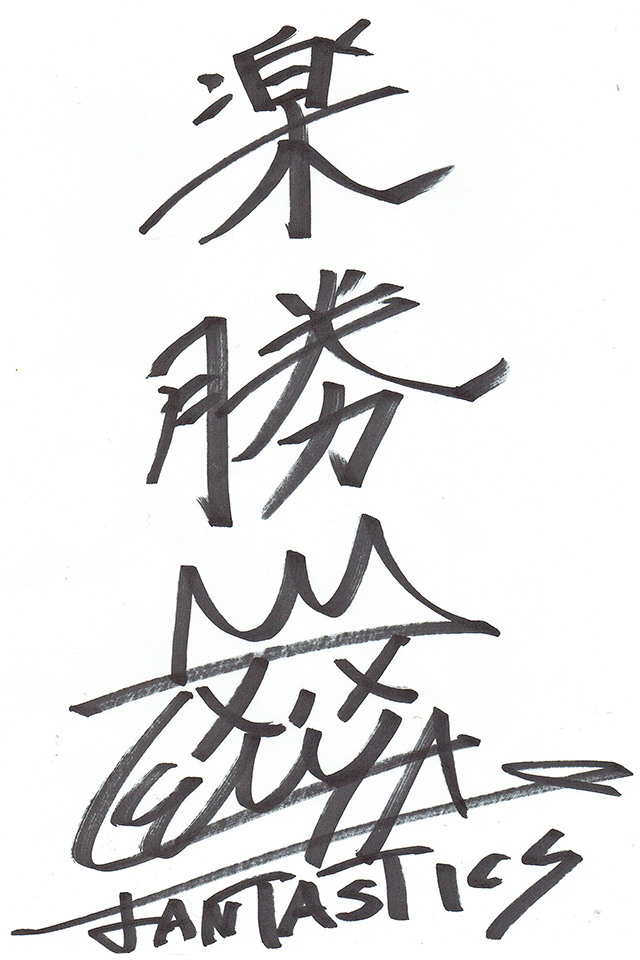 楽
勝
FANTASTICS